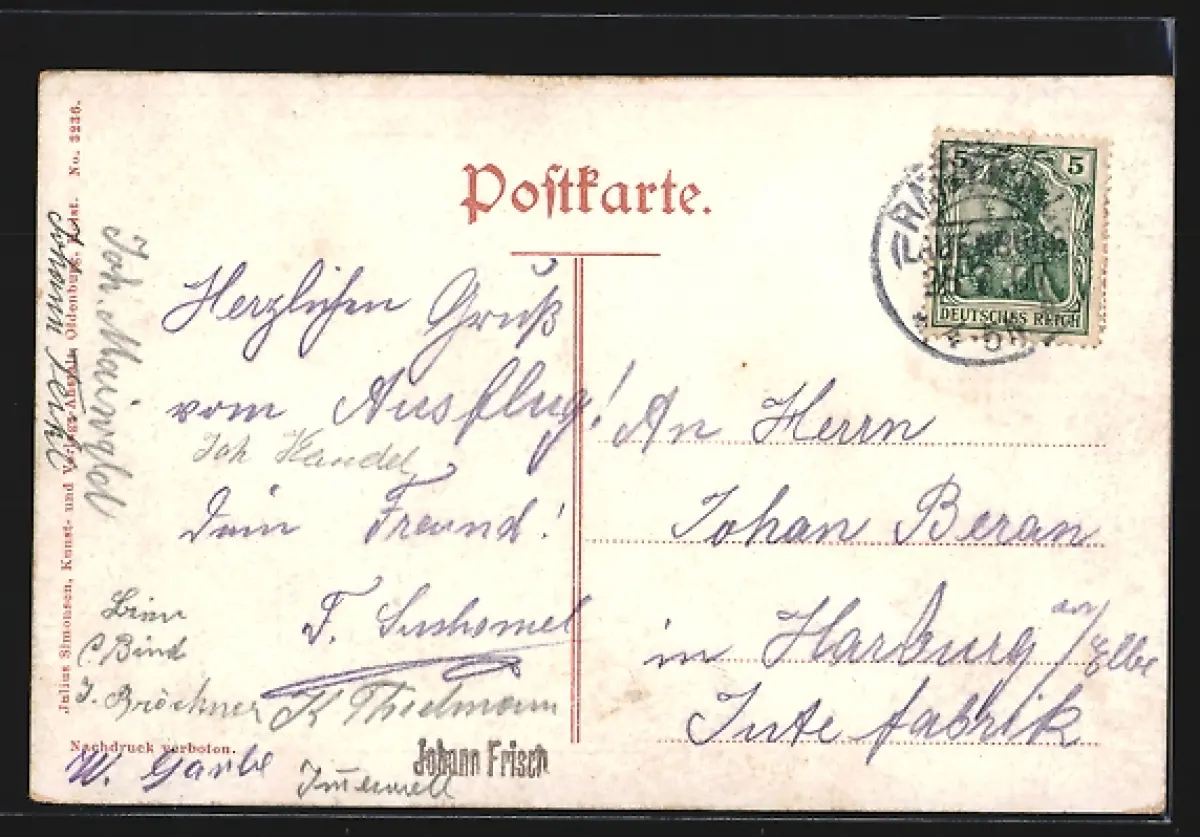 Postkarte.
5 5
DEUTSCHES REICH
Herzlichen Gruß
vom Ausflug!
Joh Handel
Dein Freund!
F. Suchomel
C Bind
J. Bröckner K Thielmann
W. Garbe
Johann Frisch
An Herrn
Johan Beran
in Harburg a/Elbe
Jute fabrik
Joh.
Johann
Julius Simonsen, Kunst- und Verlags-Anstalt, Oldenburg, Holst. No. 3236.
Nachdruck verboten.